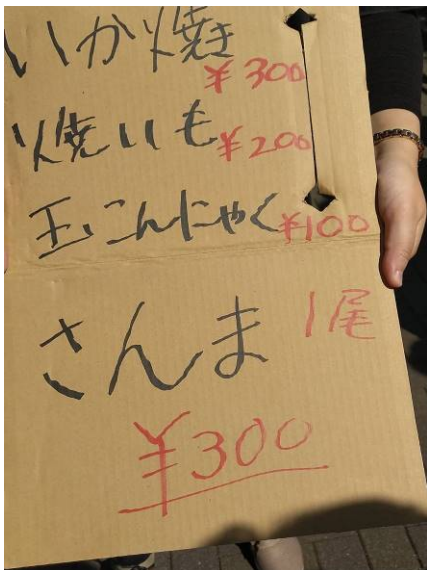 いか焼き ¥300
焼いも ¥200
玉こんにゃく ¥100
さんま 1尾
¥300